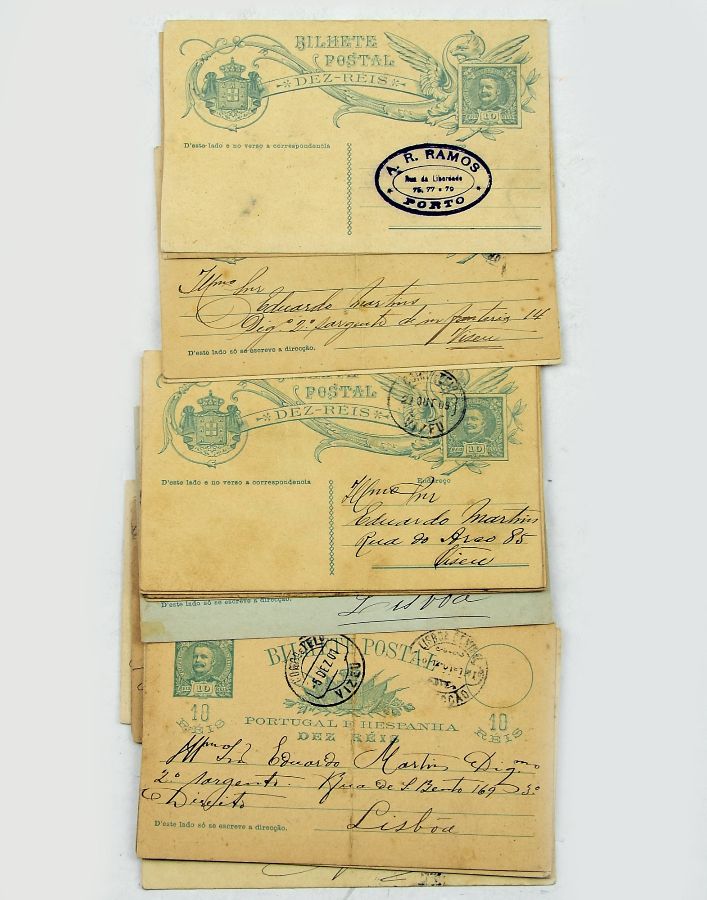 BILHETE
POSTAL
DEZ-REIS
10
D'este lado e no verso a correspondencia
A. R. RAMOS
Rua da Liberdade
75, 77 e 79
PORTO
Illmo Snr
Eduardo Martins
Digº 2º sargento d infanteria 14
Viseu
D'este lado só se escreve a direcção.
BILHETE
POSTAL
DEZ-REIS
VIZEU
10
D'este lado e no verso a correspondencia
Endereço
Illmo Snr
Eduardo Martins
Rua do Arco 85
Viseu
D'este lado só se escreve a direcção.
Lisboa
BILHETE POSTAL
5 DEZ 01
10
10
REIS
PORTUGAL E HESPANHA
DEZ RÉIS
10
REIS
Illmo Snr Eduardo Martins Dig.mo
2º sargento. Rua de S. Bento 169 3º
Direito
Lisbôa
D'este lado só se escreve a direcção.